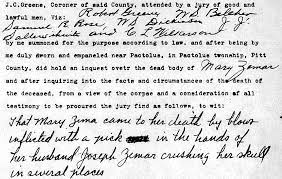 J.C.Greene, Coroner of said County, attended by a jury of good
and lawful men, Viz: Robert Greene W.S. Belcher
Samuel R. Ross, W.S. Dickinson J.J.
and C L
by me summoned for the purpose according to law, and after being by
me duly sworn and empaneled near Pactolus, in Pactolus township, Pitt
County, did hold an inquest over the dead body of Mary Zemar
and after inquiring into the facts and circumstances of the death of
the deceased, from a view of the corpse and a consideration of all
testimony to be procured the jury find as follows, to wit:
That Mary Zima came to her death by blows
inflicted with a pick in the hands of
her husband Joseph Zemar crushing her skull
in several places